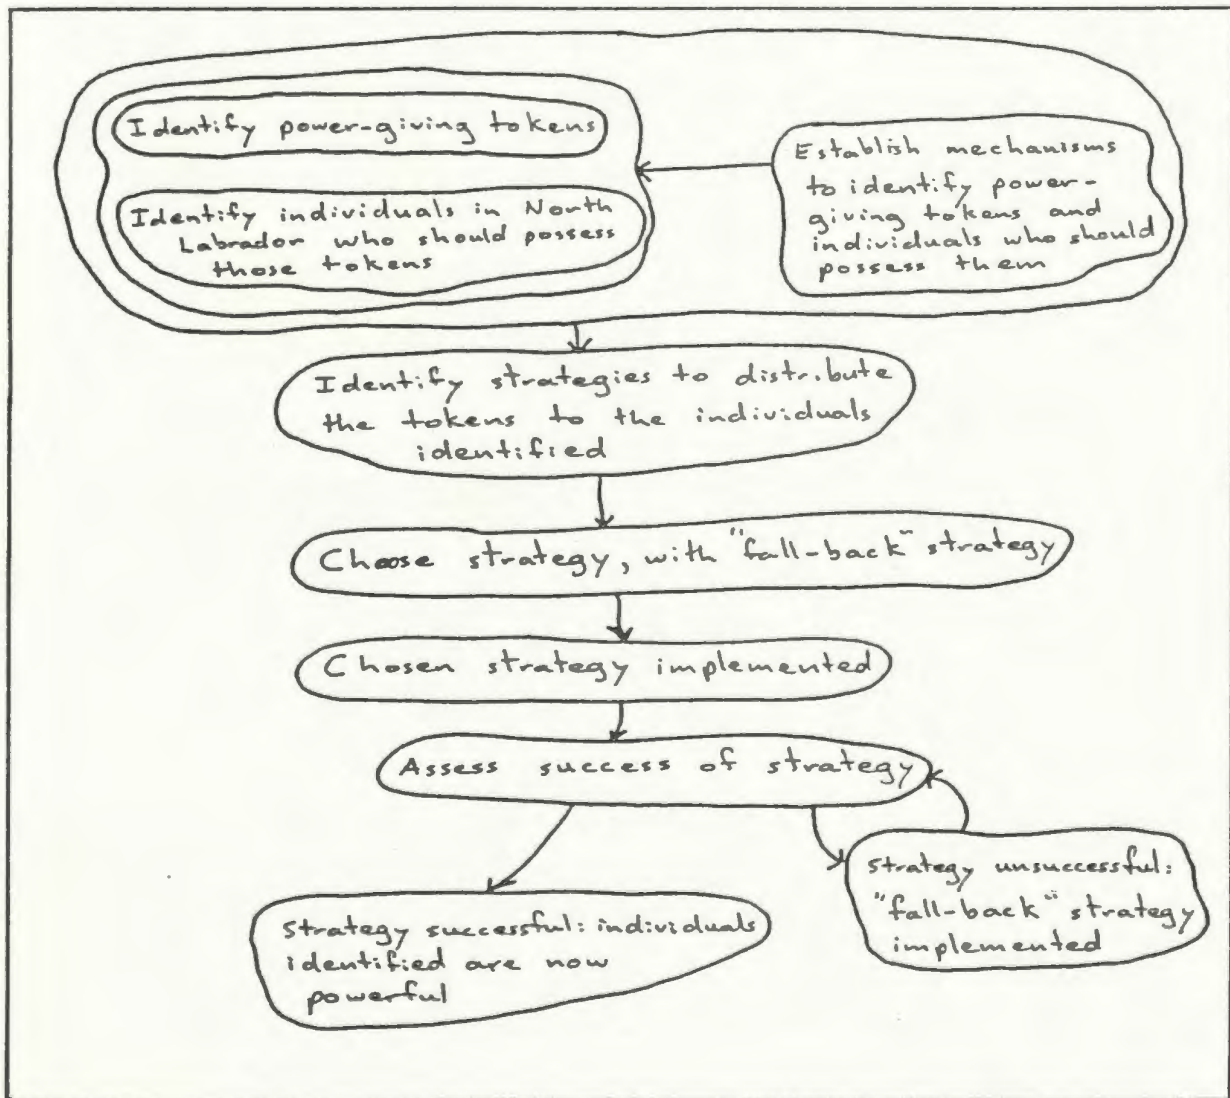 Identify power-giving tokens
Identify individuals in North
Labrador who should possess
those tokens
Establish mechanisms
to identify power-
giving tokens and
individuals who should
possess them
Identify strategies to distribute
the tokens to the individuals
identified
Choose strategy, with "fall-back" strategy
Chosen strategy implemented
Assess success of strategy
Strategy successful: individuals
identified are now
powerful
Strategy unsuccessful:
"fall-back" strategy
implemented